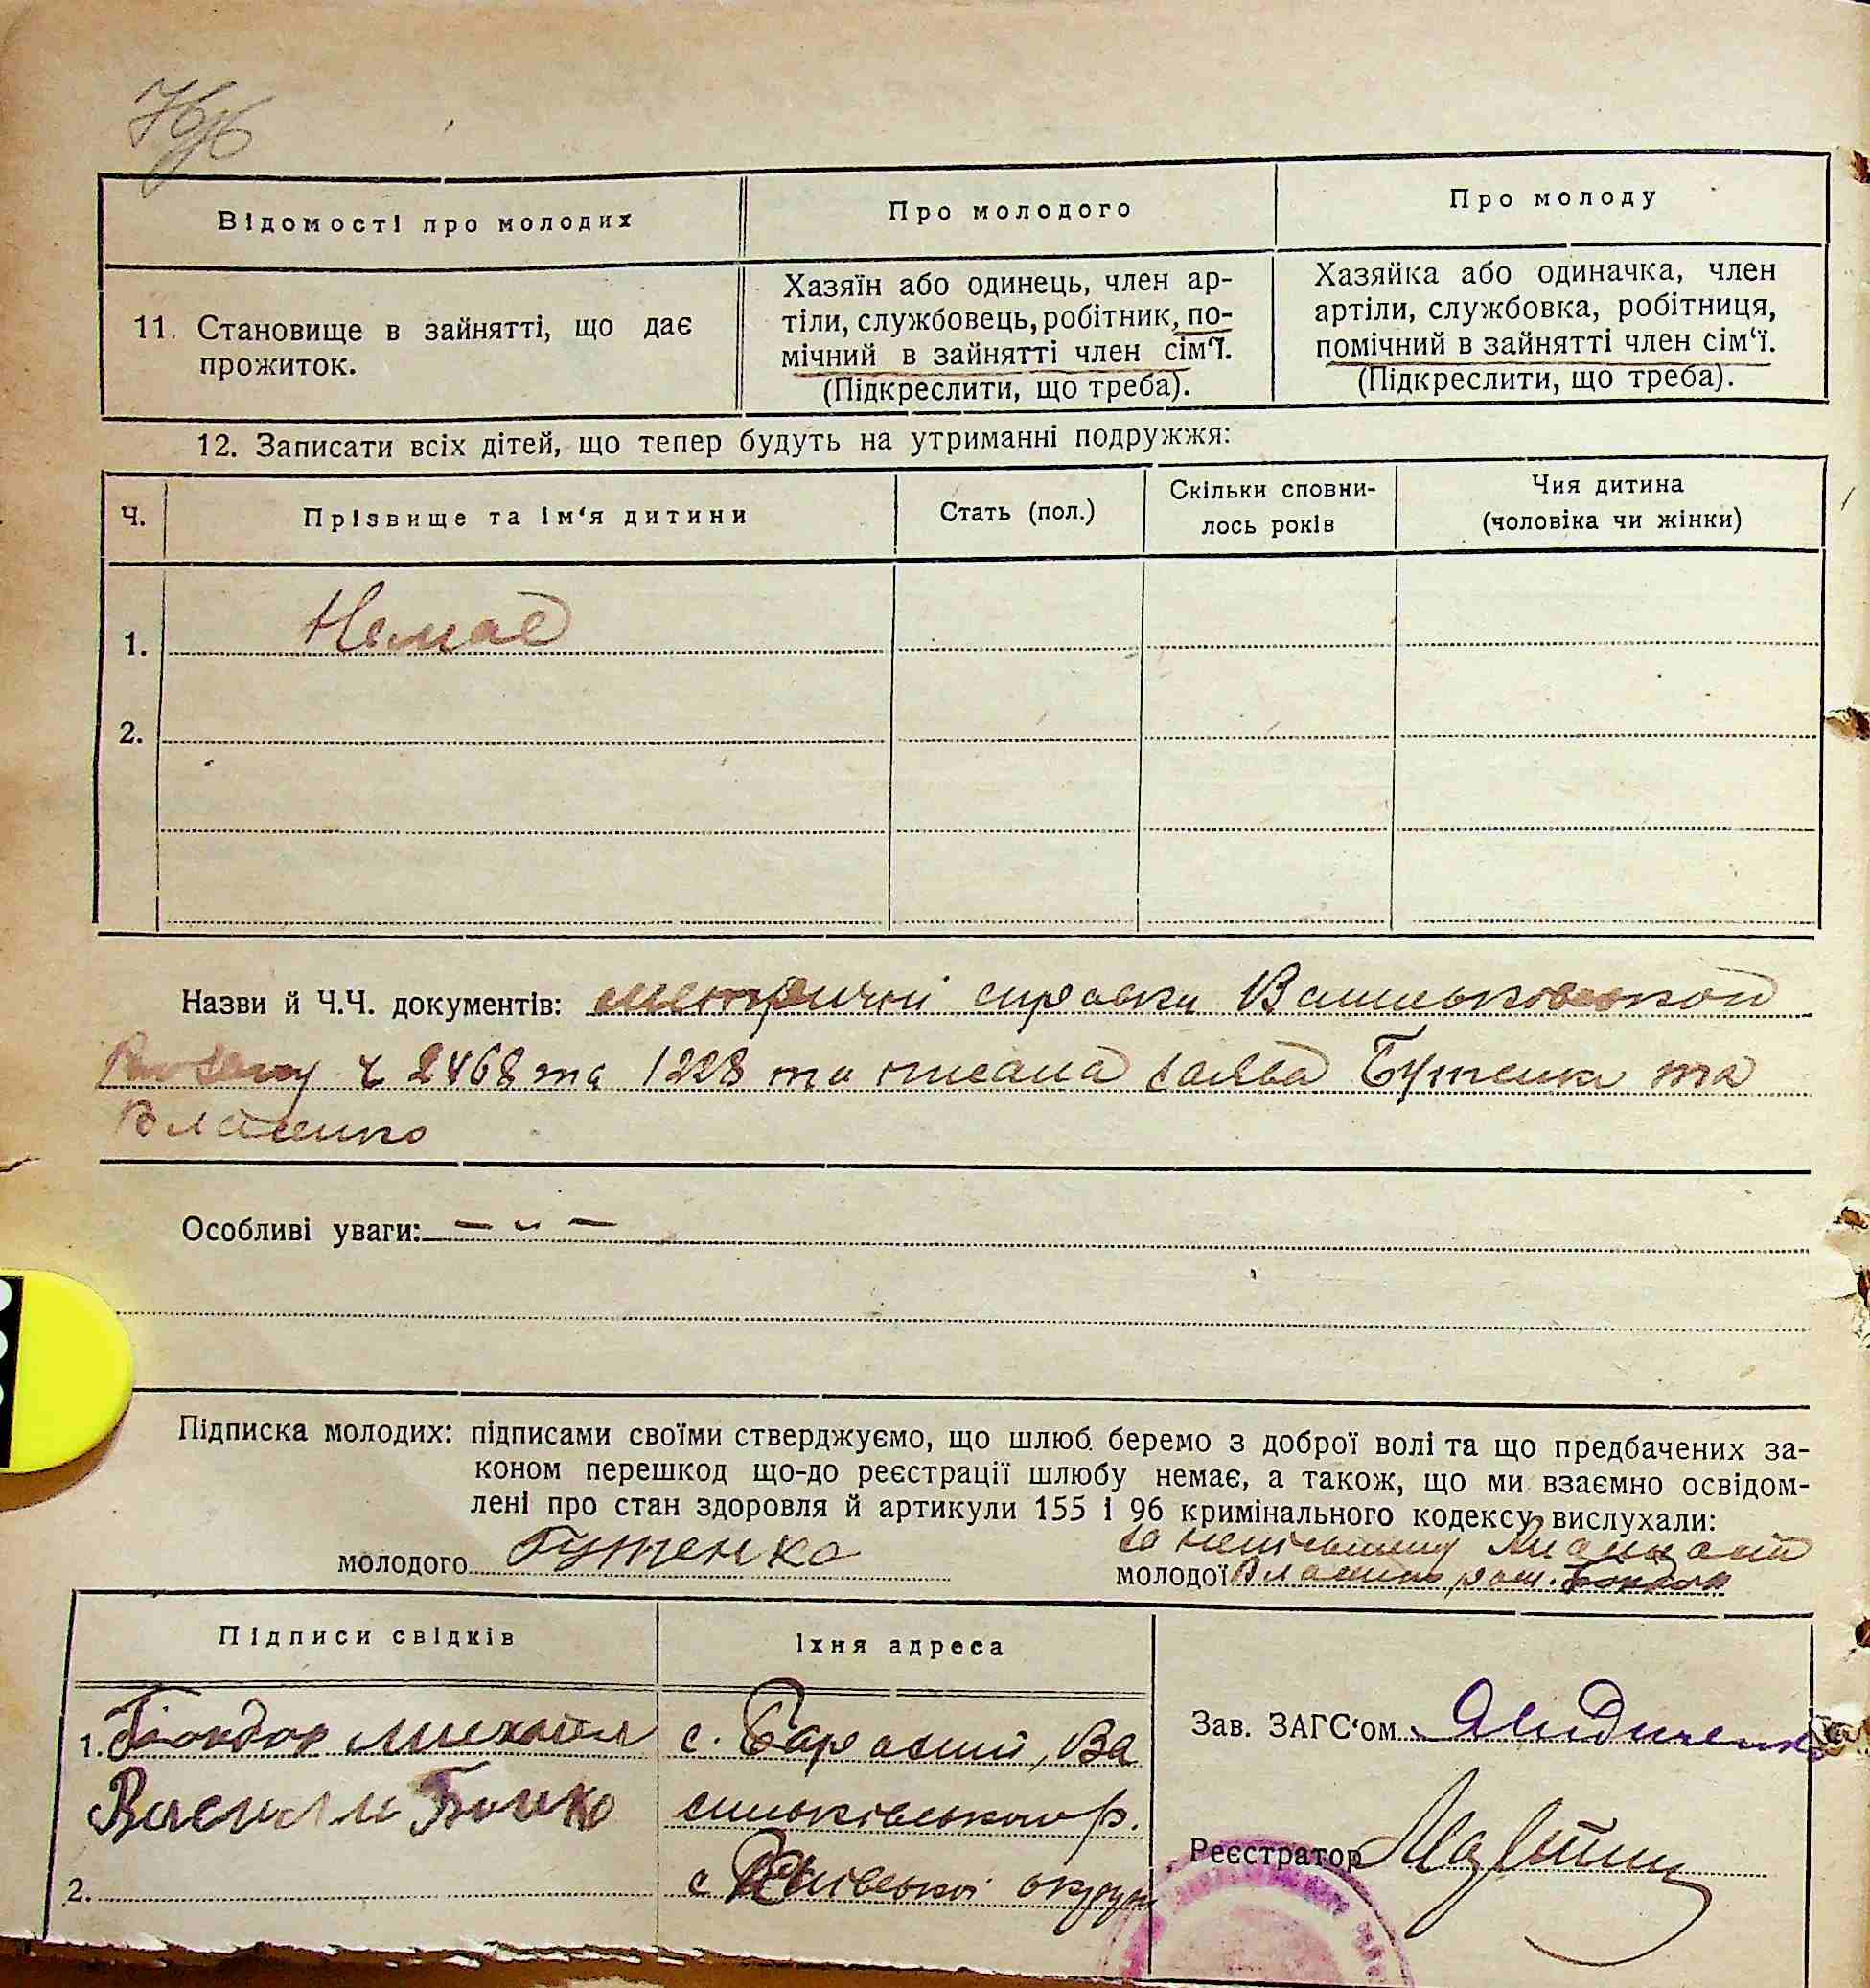 Відомості про молодих
Про молодого
Про молоду
11. Становище в зайнятті, що дає
прожиток.
Хазяїн або одинець, член ар-
тіли, службовець, робітник, по-
мічний в зайнятті член сім'ї.
(Підкреслити, що треба).
Хазяйка або одиначка, член
артіли, службовка, робітниця,
помічний в зайнятті член сім'ї.
(Підкреслити, що треба).
12. Записати всіх дітей, що тепер будуть на утриманні подружжя:
Ч.
Прізвище та ім'я дитини
Стать (пол.)
Скільки сповни-
лось років
Чия дитина
(чоловіка чи жінки)
1. Немає
2.
Назви й Ч.Ч. документів: метричні справки Васильковського
ч 2468 та 1228 та писана заява Бутенка та
Власенко
Особливі уваги: — „ —
Підписка молодих: підписами своїми стверджуємо, що шлюб беремо з доброї волі та що предбачених за-
коном перешкод що-до реєстрації шлюбу немає, а також, що ми взаємно освідом-
лені про стан здоровля й артикули 155 і 96 кримінального кодексу вислухали:
молодого Бутенко
за неписьменну
молодої Власенко роз. Бондар
Підписи свідків
Їхня адреса
1. Бондар Михайло
Василь Бойко
2.
с. Барахти, Ва
сильківського р.
Київської округи
Зав. ЗАГС'ом
Реєстратор